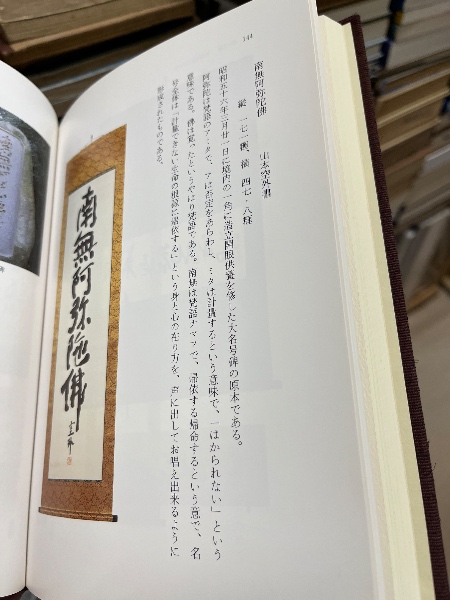 144
南無阿弥陀佛
山本空外書
縦 一七一糎、横 四七・八糎
昭和五十六年三月廿一日に境内の一角に設立開眼供養を修した大名号碑の原本である。
阿弥陀は梵語のアミタで、アは否定をあらわし、ミタは計量するという意味で、「はかられない」という
意味である。佛は覚ったというやはり梵語である。南無は梵語ナマスで、帰依する帰命するという意で、名
号全体は「計量できない生命の根源に帰依する」という身と心の在り方を、声に出してお唱え出来るように
形成されたものである。
南無阿弥陀佛
空外